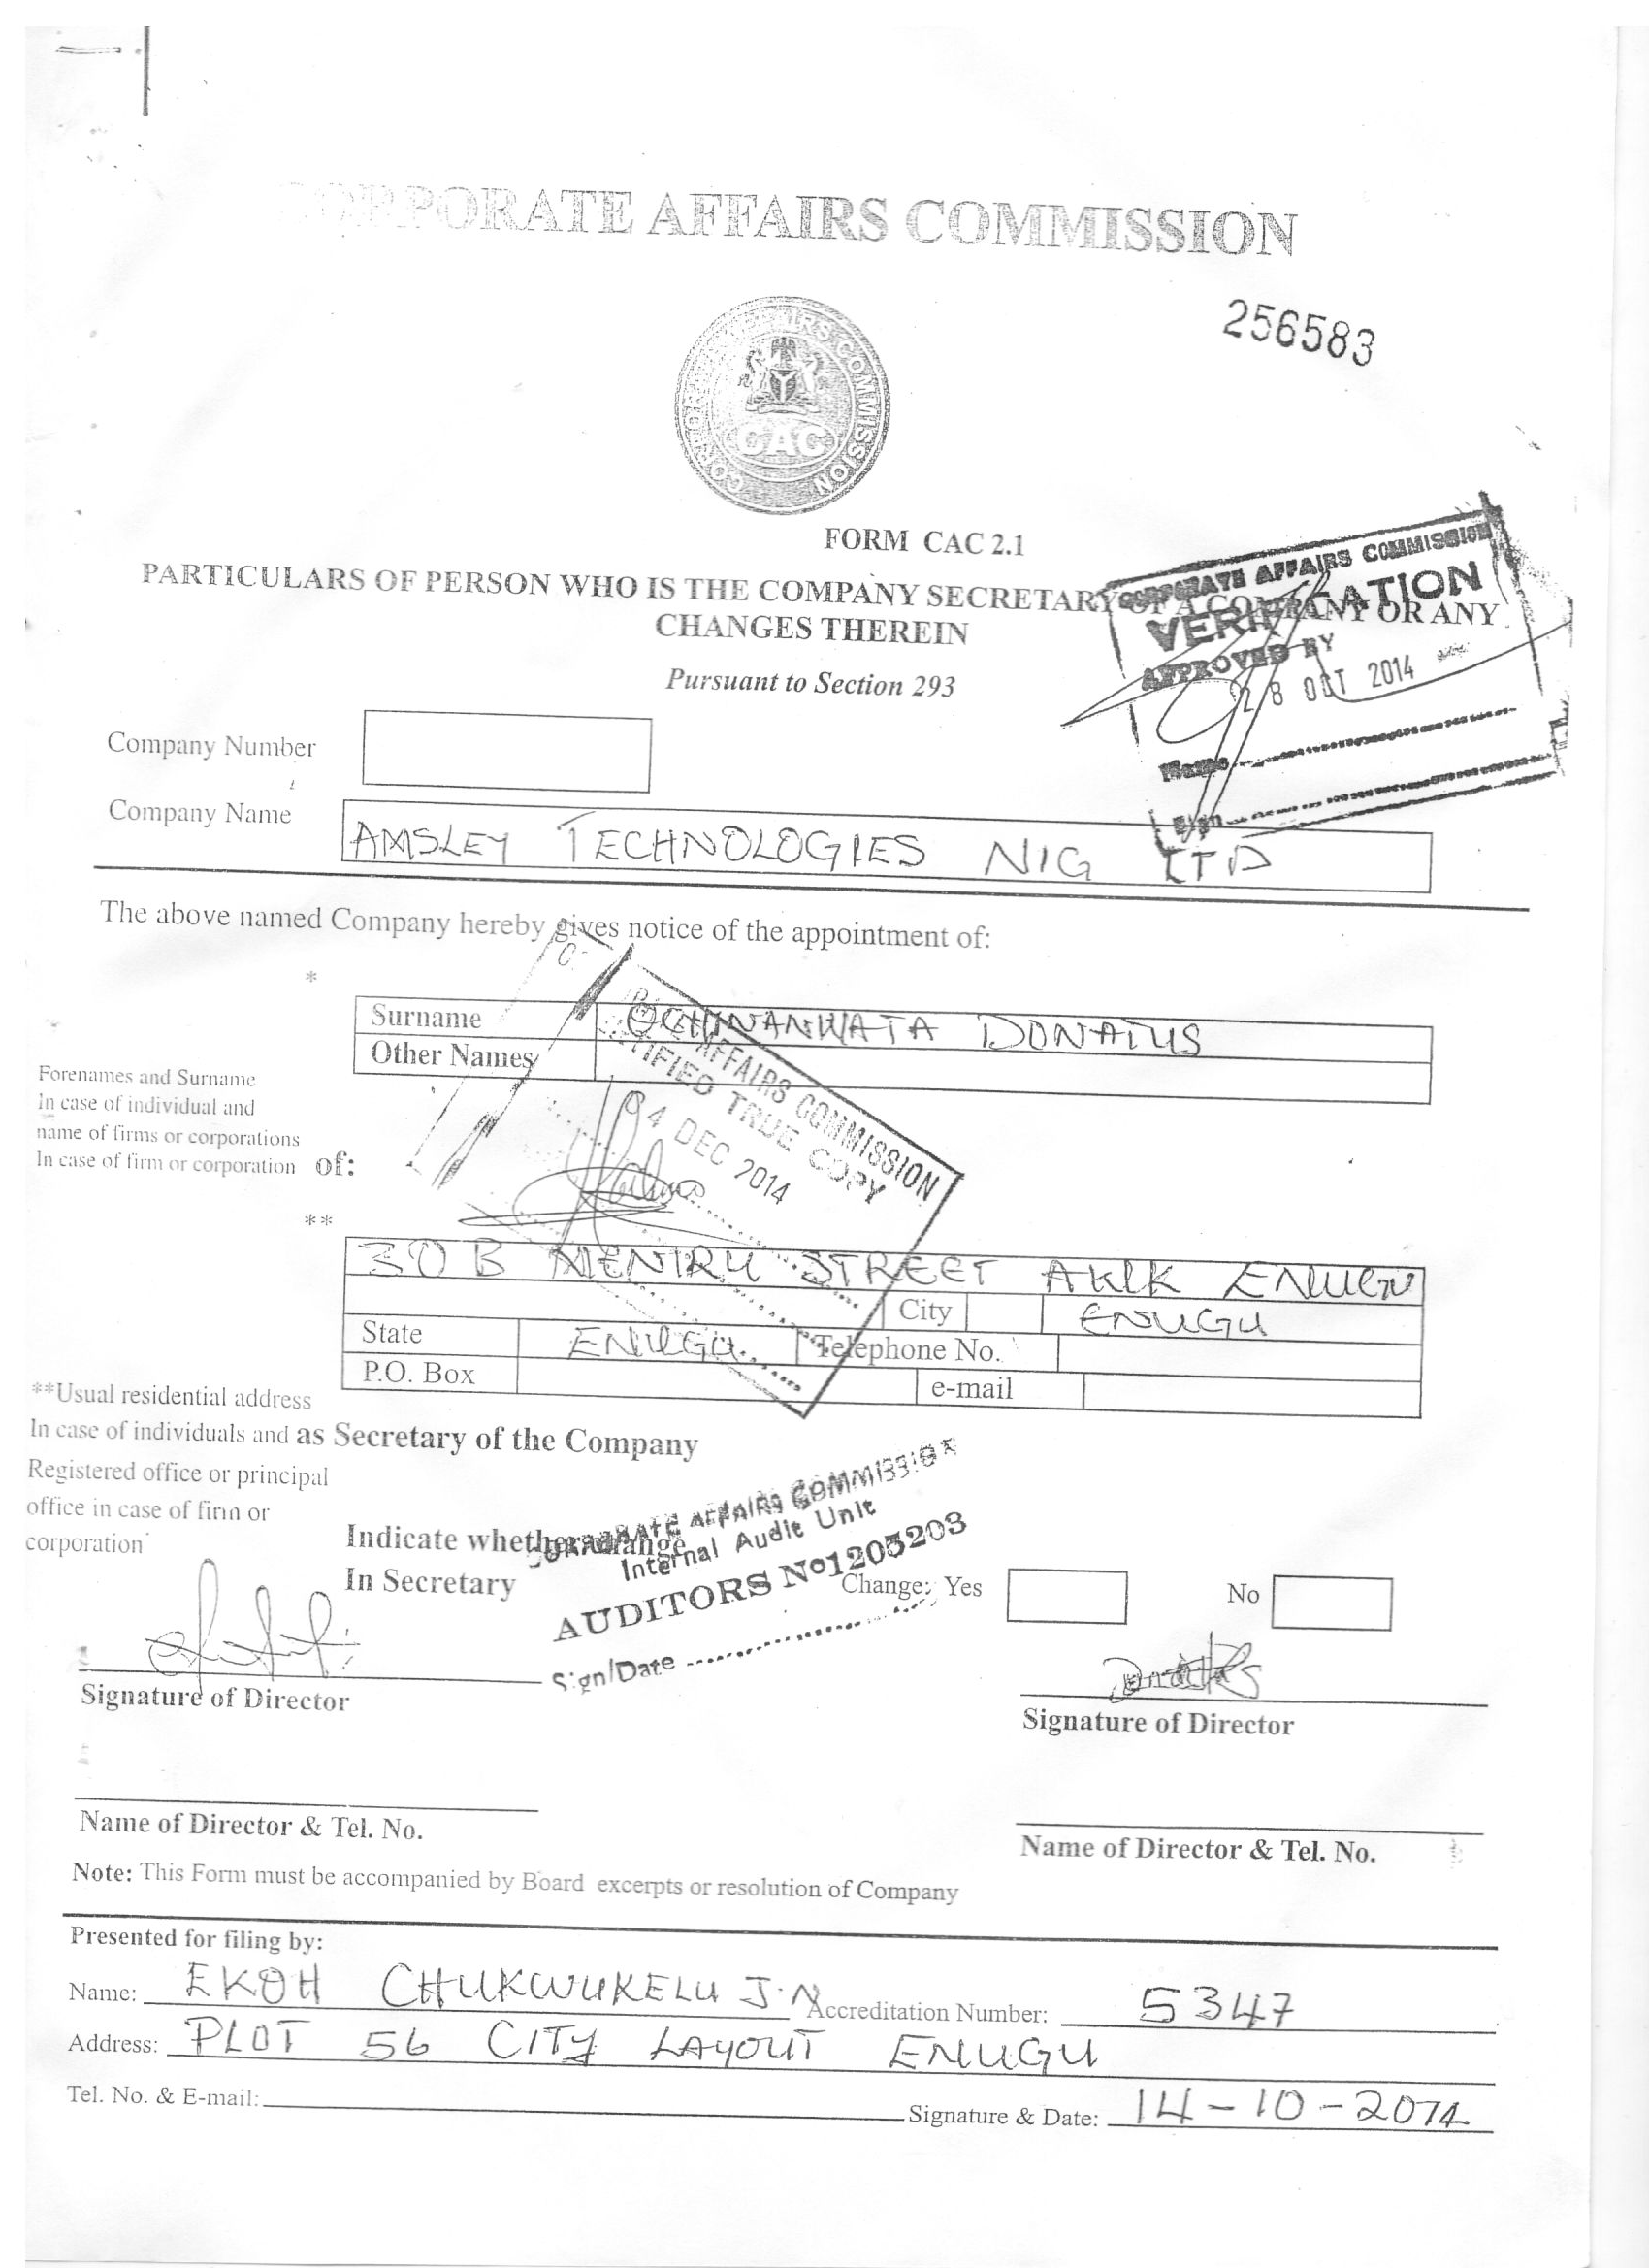 CORPORATE AFFAIRS COMMISSION
256583
CORPORATE AFFAIRS COMMISSION
CAC
FORM CAC 2.1
PARTICULARS OF PERSON WHO IS THE COMPANY SECRETARY OF A COMPANY OR ANY
CHANGES THEREIN
Pursuant to Section 293
CORPORATE AFFAIRS COMMISSION
VERIFICATION
APPROVED BY
28 OCT 2014
Name
Sign
Company Number
Company Name
AMSLEY TECHNOLOGIES NIG LTD
The above named Company hereby gives notice of the appointment of:
*
Surname
OCHINANWATA DONATUS
Other Names
Forenames and Surname
In case of individual and
name of firms or corporations
In case of firm or corporation of:
AFFAIRS COMMISSION
CERTIFIED TRUE COPY
04 DEC 2014
**
30 B MENIRU STREET ENUGU
City ENUGU
State ENUGU Telephone No.
P.O. Box e-mail
**Usual residential address
In case of individuals and as Secretary of the Company
Registered office or principal
office in case of firm or
corporation
Indicate whether change
In Secretary
Change: Yes No
CORPORATE AFFAIRS COMMISSION
Internal Audit Unit
AUDITORS Nº1205203
Sign/Date
Signature of Director
Signature of Director
Name of Director & Tel. No.
Name of Director & Tel. No.
Note: This Form must be accompanied by Board excerpts or resolution of Company
Presented for filing by:
Name: EKOH CHUKWUKELU J.N Accreditation Number: 5347
Address: PLOT 56 CITY LAYOUT ENUGU
Tel. No. & E-mail: Signature & Date: 14-10-2014